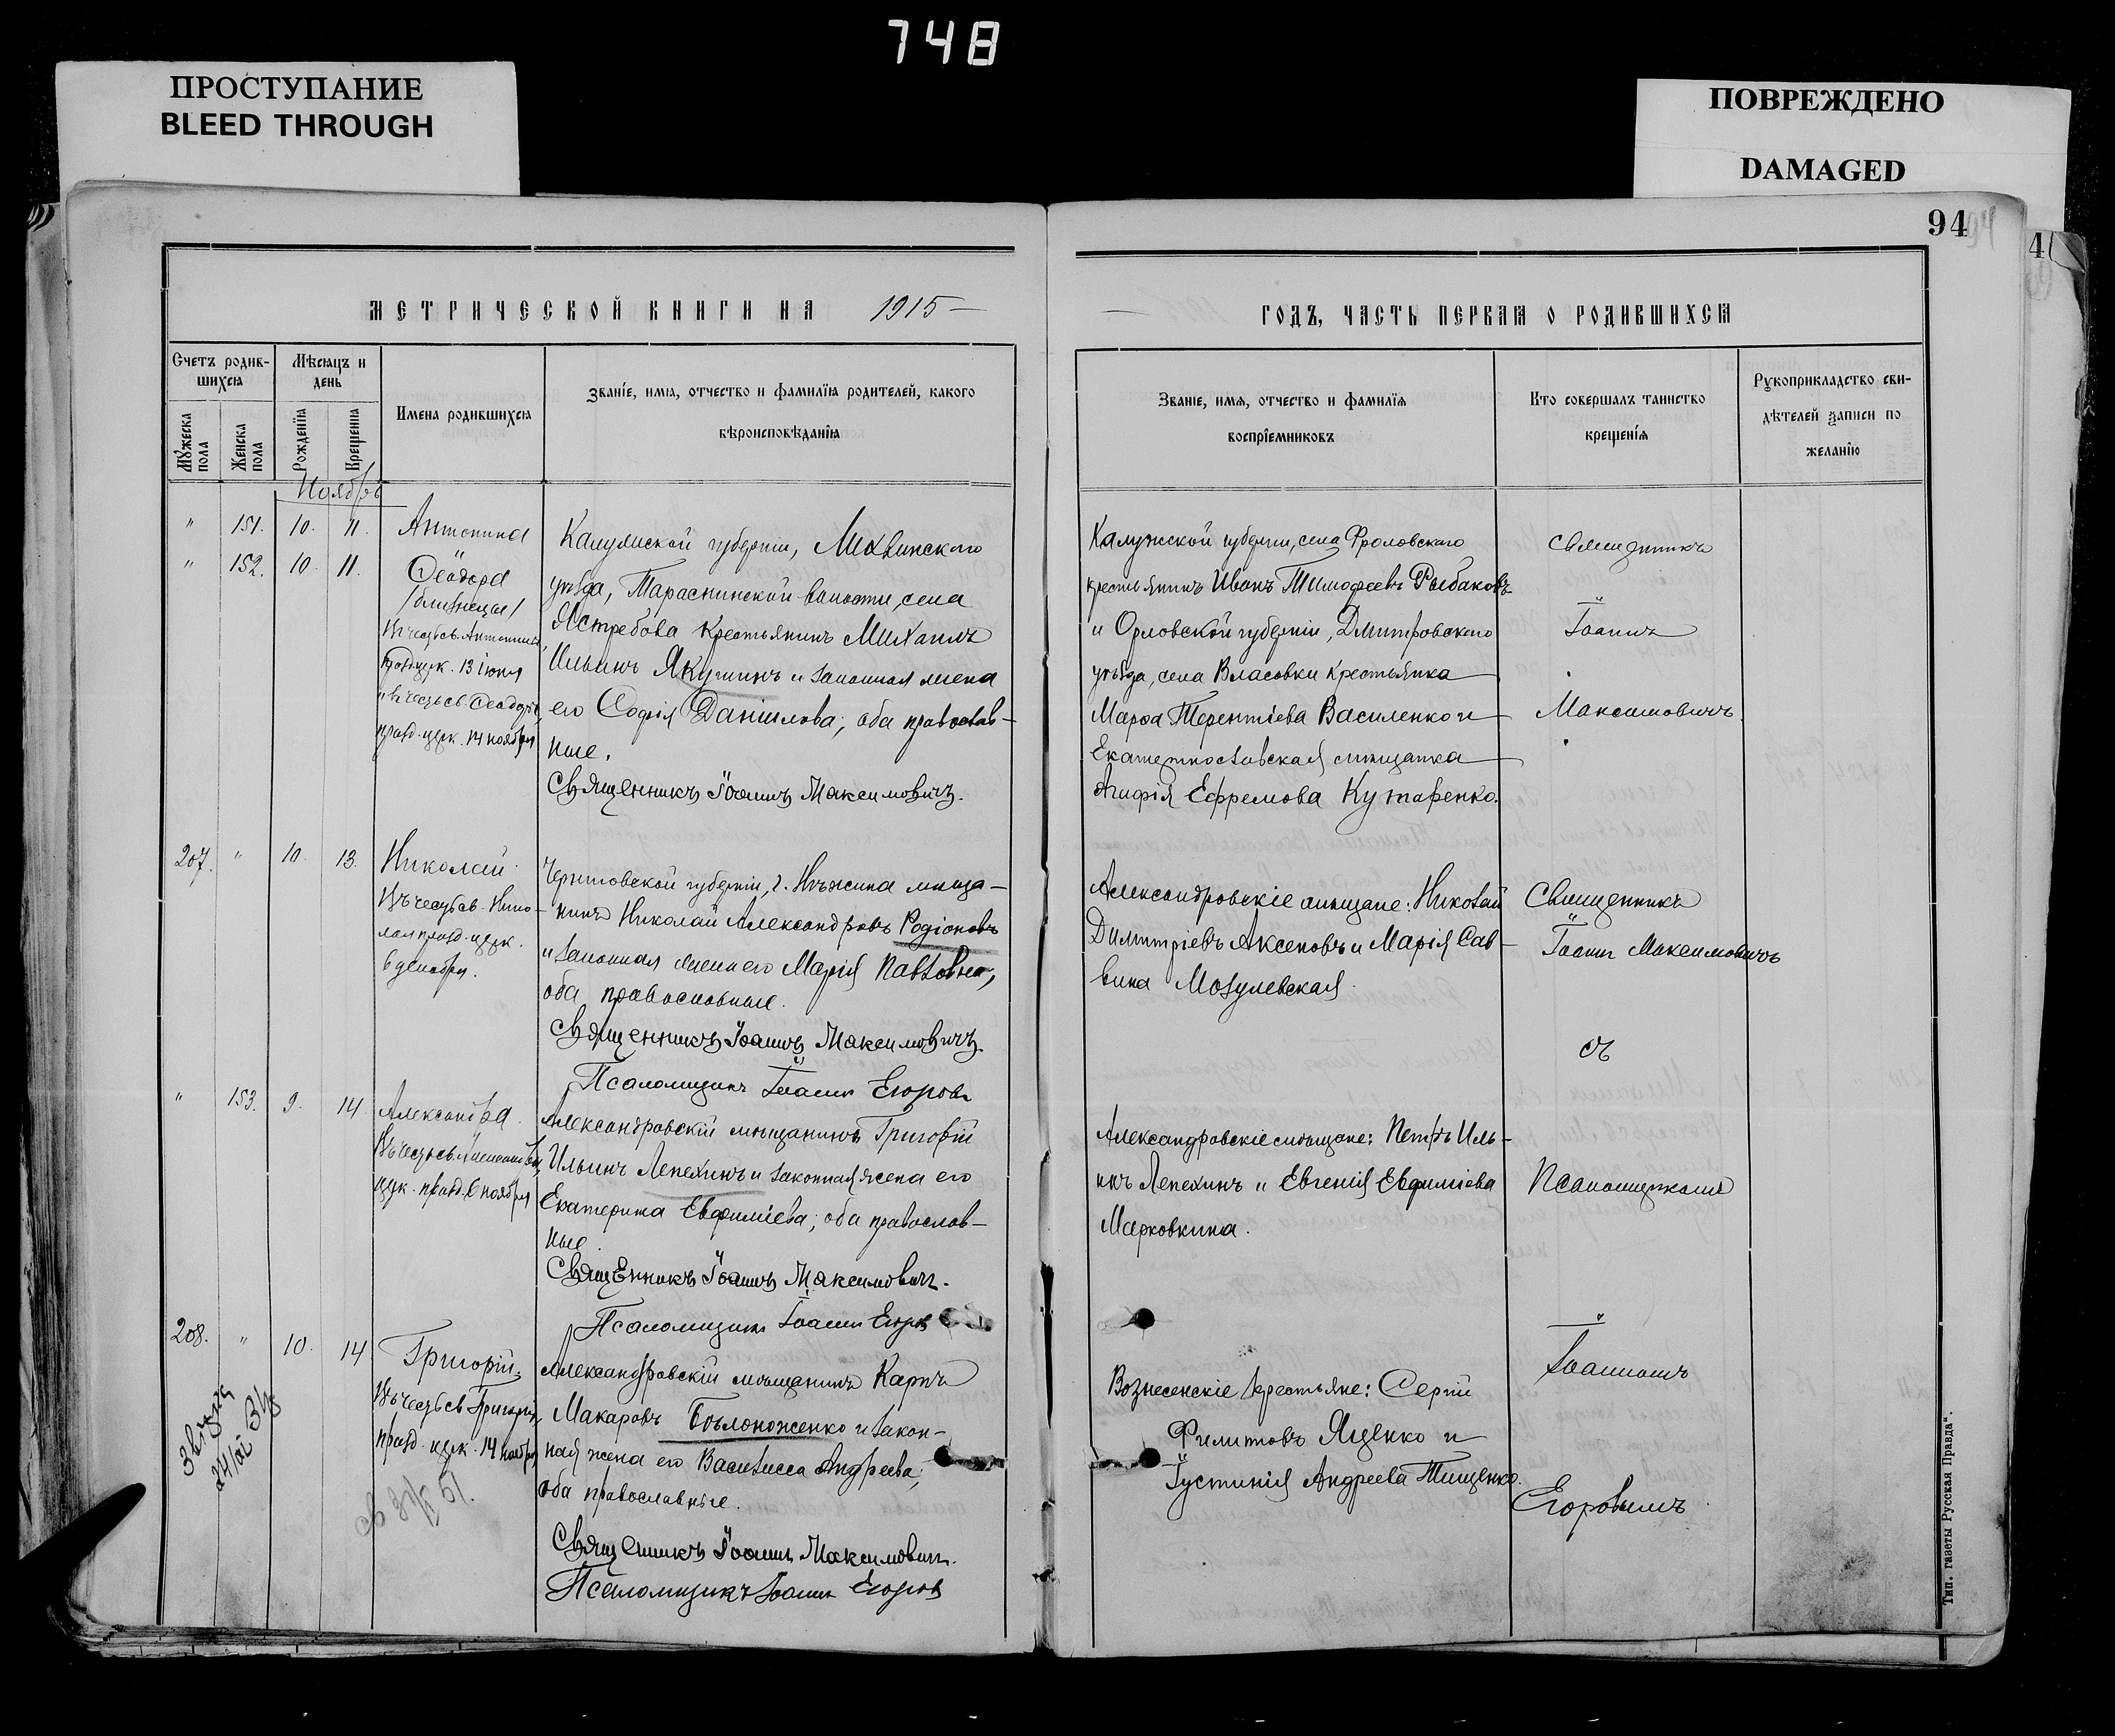 748
ПРОСТУПАНИЕ
BLEED THROUGH
ПОВРЕЖДЕНО
DAMAGED
94
4
МЕТРИЧЕСКОЙ КНИГИ НА 1915
Счетъ родив-
шихся
Мѣсяцъ и
день
Имена родившихся
Званіе, имя, отчество и фамилія родителей, какого
вѣроисповѣданія
Мужеска
пола
Женска
пола
Рожденія
Крещенія
Ноябрь
" 151. 10. 11. Антонина
" 152. 10. 11. Ѳеодора
/близнецы/
Въ честь св. Антонины,
празд. церк. 13 іюня
и въ честь св. Ѳеодоры,
празд. церк. 14 ноября
Калужской губерніи, Лихвинскаго
уѣзда, волости, села
Ястребова крестьянинъ Михаилъ
Ильинъ Якушинъ и законная жена
его Софія Даніилова; оба православ-
ные.
Священникъ Іоаннъ Максимовичъ.
207. " 10. 13. Николай
Въ честь св. Нико-
лая празд. церк.
6 декабря.
Черниговской губерніи, г. Нѣжина мѣща-
нинъ Николай Александровъ Родіоновъ
и законная жена его Марія Павловна,
оба православные.
Священникъ Іоаннъ Максимовичъ.
Псаломщикъ Іоаннъ Егоровъ
" 153. 9. 14. Александра.
Въ честь св. Александры,
церк. празд. 6 ноября
Александровскій мѣщанинъ Григорій
Ильинъ Лепехинъ и законная жена его
Екатерина Евфиміева; оба православ-
ные.
Священникъ Іоаннъ Максимовичъ.
Псаломщикъ Іоаннъ
208. " 10. 14. Григорій.
Въ честь св. Григорія,
празд. церк. 14 ноября
Александровскій мѣщанинъ Карпъ
Макаровъ Бѣлоноженко и закон-
ная жена его Василисса Андреева;
оба православные.
Священникъ Іоаннъ Максимовичъ.
Псаломщикъ Іоаннъ Егоровъ
ГОДЪ, ЧАСТЬ ПЕРВАЯ О РОДИВШИХСЯ
Званіе, имя, отчество и фамилія
воспріемниковъ
Кто совершалъ таинство
крещенія
Рукоприкладство сви-
дѣтелей записи по
желанію
Калужской губерніи, села Фроловскаго
крестьянинъ Иванъ Тимофеевъ Рыбаковъ
и Орловской губерніи, Дмитровскаго
уѣзда, села Власовки крестьянка
Марѳа Терентіева Василенко и
Екатеринославская мѣщанка
Агафія Ефремова Кутаренко.
Священникъ
Іоаннъ
Максимовичъ.
Александровскіе мѣщане: Николай
Димитріевъ Аксеновъ и Марія Сав-
вина Мозулевская.
Священникъ
Іоаннъ Максимовичъ
съ
Александровскіе мѣщане: Петръ Иль-
инъ Лепехинъ и Евгенія Евфиміева
Марковкина.
Псаломщикомъ
Вознесенскіе крестьяне: Сергій
Филиповъ Яценко и
Іустинія Андреева Тищенко.
Іоанномъ
Егоровымъ
Тип. газеты Русская Правда".